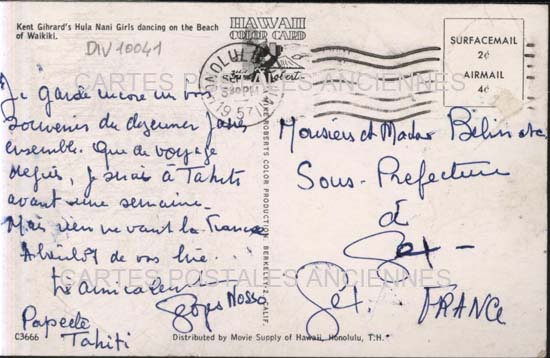 Kent Gihrard's Hula Nani Girls dancing on the Beach
of Waikiki.
DIV10041
HAWAII
COLOR CARD
HONOLULU
SEP
530PM
1957
SURFACEMAIL
2¢
AIRMAIL
4¢
CARTES POSTALES ANCIENNES
Je garde encore un
souvenir du dejeuner
ensemble. Que de voyage
depuis, je suis à Tahiti
avant une semaine.
Mais rien ne vaut la France
A bientôt de vos
Très amicalement
Papeete
Tahiti
Monsieur et Madame Bélin
Sous-Prefecture
à
Gex -
Gex. FRANCE
CARTES POSTALES ANCIENNES
ROBERTS COLOR PRODUCTION, BERKELEY 2, CALIF.
C3666
Distributed by Movie Supply of Hawaii, Honolulu, T.H.